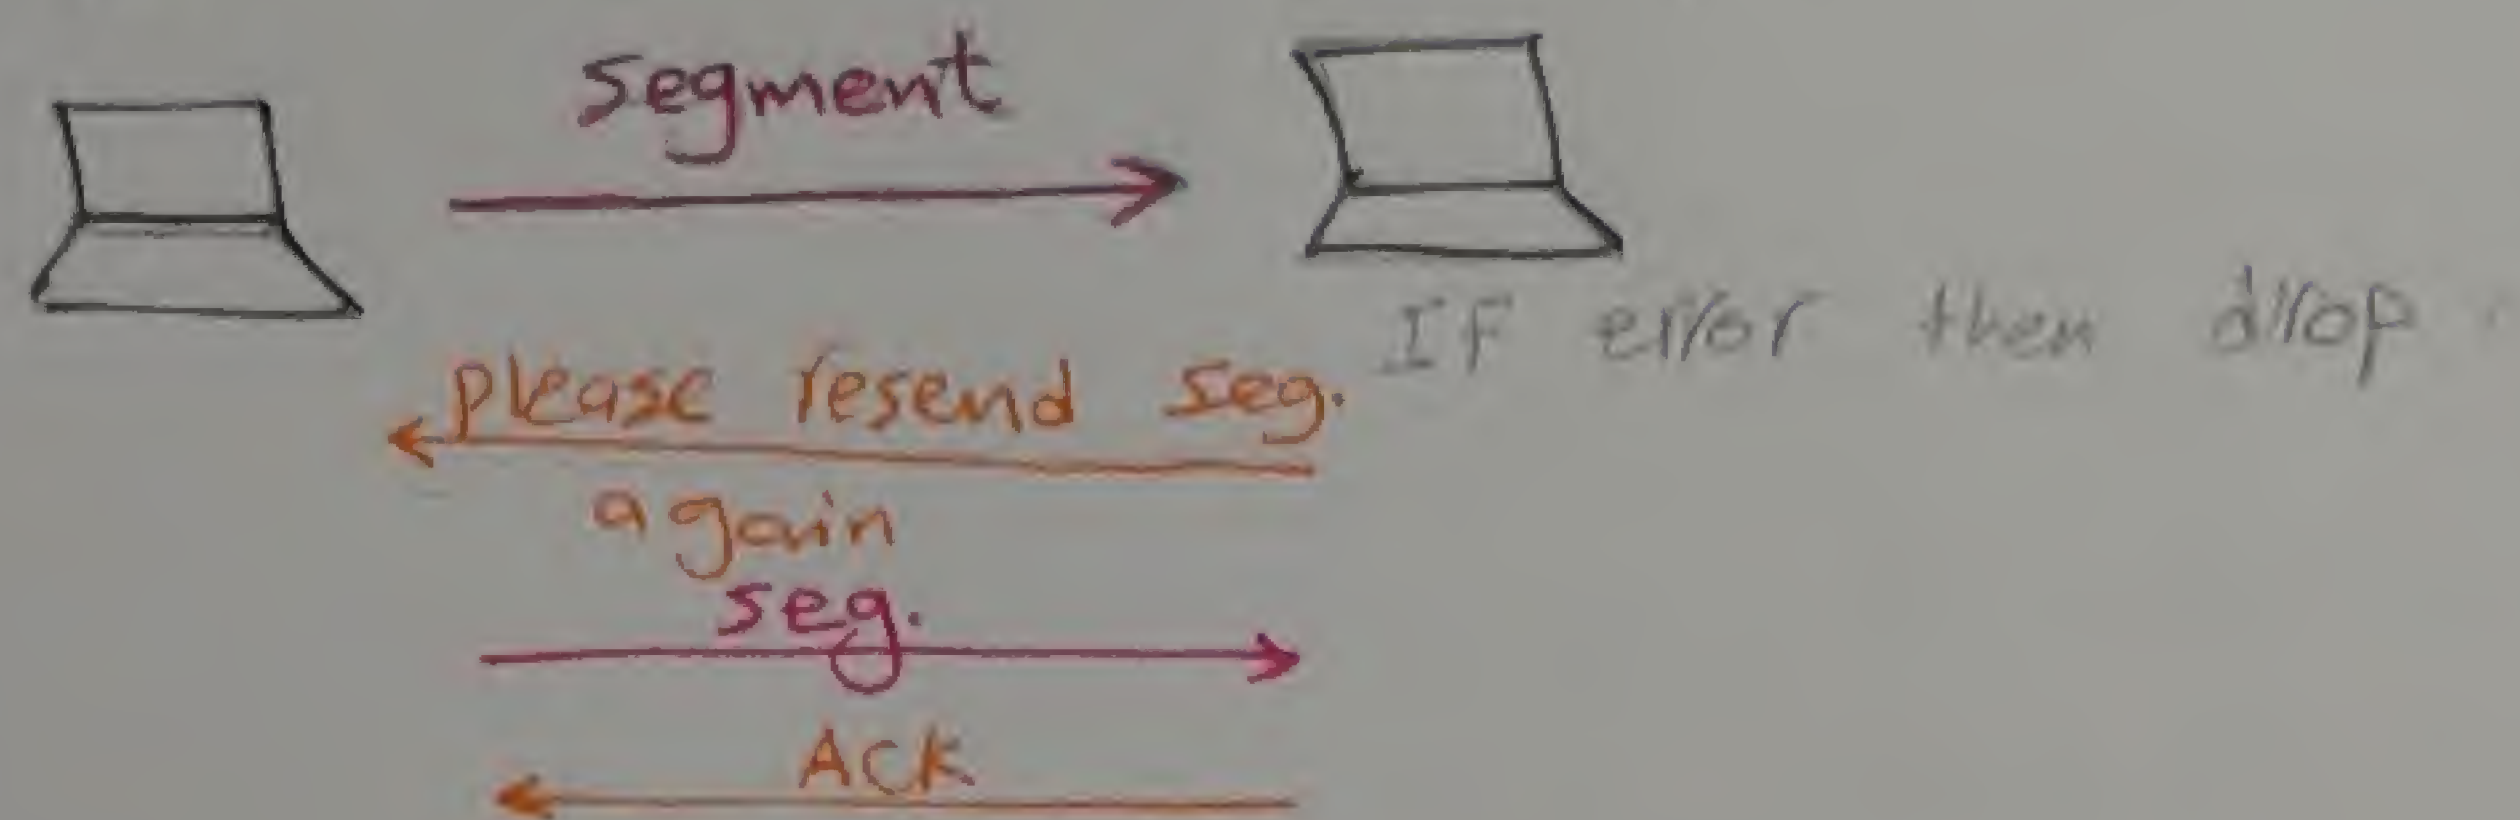 segment
If error then drop
please resend seg.
again
seg.
ACK